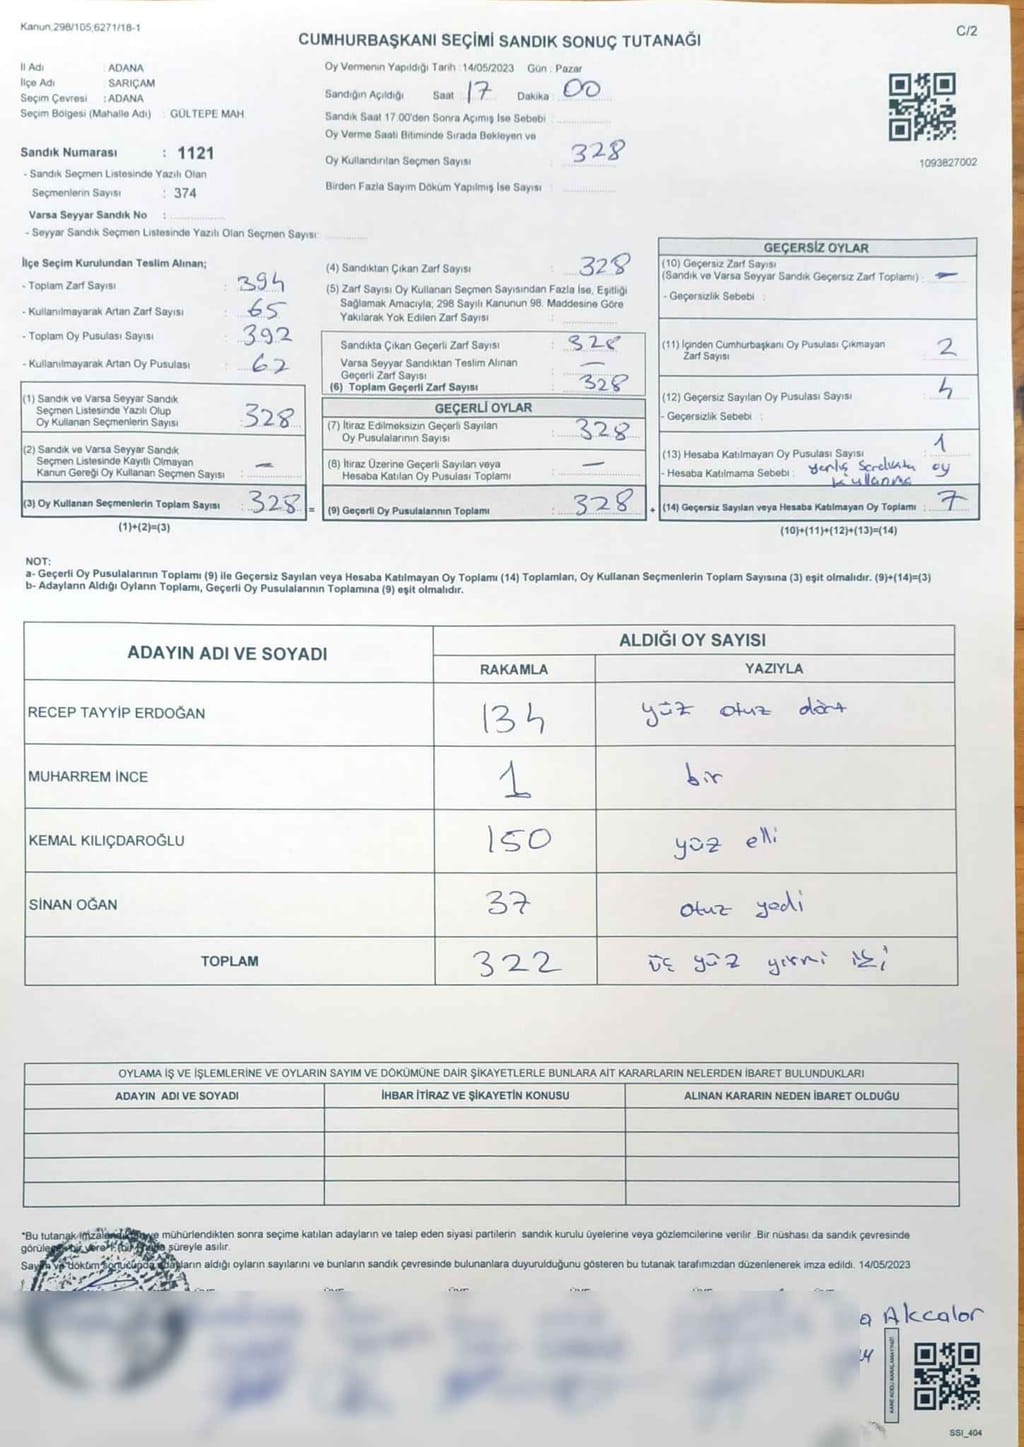 Kanun,298/105,6271/18-1
C/2
CUMHURBAŞKANI SEÇİMİ SANDIK SONUÇ TUTANAĞI
İl Adı : ADANA
İlçe Adı : SARIÇAM
Seçim Çevresi : ADANA
Seçim Bölgesi (Mahalle Adı) : GÜLTEPE MAH
Sandık Numarası : 1121
- Sandık Seçmen Listesinde Yazılı Olan
Seçmenlerin Sayısı : 374
Varsa Seyyar Sandık No :
- Seyyar Sandık Seçmen Listesinde Yazılı Olan Seçmen Sayısı:
Oy Vermenin Yapıldığı Tarih : 14/05/2023 Gün : Pazar
Sandığın Açıldığı Saat : 17 Dakika : 00
Sandık Saat 17.00'den Sonra Açımış İse Sebebi :
Oy Verme Saati Bitiminde Sırada Bekleyen ve
Oy Kullandırılan Seçmen Sayısı : 328
Birden Fazla Sayım Döküm Yapılmış İse Sayısı :
1093827002
İlçe Seçim Kurulundan Teslim Alınan;
- Toplam Zarf Sayısı : 394
- Kullanılmayarak Artan Zarf Sayısı : 65
- Toplam Oy Pusulası Sayısı : 392
- Kullanılmayarak Artan Oy Pusulası : 62
(1) Sandık ve Varsa Seyyar Sandık
Seçmen Listesinde Yazılı Olup
Oy Kullanan Seçmenlerin Sayısı : 328
(2) Sandık ve Varsa Seyyar Sandık
Seçmen Listesinde Kayıtlı Olmayan
Kanun Gereği Oy Kullanan Seçmen Sayısı : —
(3) Oy Kullanan Seçmenlerin Toplam Sayısı : 328 =
(1)+(2)=(3)
(4) Sandıktan Çıkan Zarf Sayısı : 328
(5) Zarf Sayısı Oy Kullanan Seçmen Sayısından Fazla İse, Eşitliği
Sağlamak Amacıyla; 298 Sayılı Kanunun 98. Maddesine Göre
Yakılarak Yok Edilen Zarf Sayısı :
Sandıkta Çıkan Geçerli Zarf Sayısı : 328
Varsa Seyyar Sandıktan Teslim Alınan
Geçerli Zarf Sayısı : —
(6) Toplam Geçerli Zarf Sayısı : 328
GEÇERLİ OYLAR
(7) İtiraz Edilmeksizin Geçerli Sayılan
Oy Pusulalarının Sayısı : 328
(8) İtiraz Üzerine Geçerli Sayılan veya
Hesaba Katılan Oy Pusulaları Toplamı : —
(9) Geçerli Oy Pusulalarının Toplamı : 328 +
GEÇERSİZ OYLAR
(10) Geçersiz Zarf Sayısı
(Sandık ve Varsa Seyyar Sandık Geçersiz Zarf Toplamı) : —
- Geçersizlik Sebebi :
(11) İçinden Cumhurbaşkanı Oy Pusulası Çıkmayan
Zarf Sayısı : 2
(12) Geçersiz Sayılan Oy Pusulası Sayısı : 4
- Geçersizlik Sebebi :
(13) Hesaba Katılmayan Oy Pusulası Sayısı : 1
- Hesaba Katılmama Sebebi : yanlış Sandıkta oy
kullanma
(14) Geçersiz Sayılan veya Hesaba Katılmayan Oy Toplamı : 7
(10)+(11)+(12)+(13)=(14)
NOT:
a- Geçerli Oy Pusulalarının Toplamı (9) ile Geçersiz Sayılan veya Hesaba Katılmayan Oy Toplamı (14) Toplamları, Oy Kullanan Seçmenlerin Toplam Sayısına (3) eşit olmalıdır. (9)+(14)=(3)
b- Adayların Aldığı Oyların Toplamı, Geçerli Oy Pusulalarının Toplamına (9) eşit olmalıdır.
ADAYIN ADI VE SOYADI ALDIĞI OY SAYISI
RAKAMLA YAZIYLA
RECEP TAYYİP ERDOĞAN 134 yüz otuz dört
MUHARREM İNCE 1 bir
KEMAL KILIÇDAROĞLU 150 yüz elli
SİNAN OĞAN 37 otuz yedi
TOPLAM 322 üç yüz yirmi iki
OYLAMA İŞ VE İŞLEMLERİNE VE OYLARIN SAYIM VE DÖKÜMÜNE DAİR ŞİKAYETLERLE BUNLARA AİT KARARLARIN NELERDEN İBARET BULUNDUKLARI
ADAYIN ADI VE SOYADI İHBAR İTİRAZ VE ŞİKAYETİN KONUSU ALINAN KARARIN NEDEN İBARET OLDUĞU
*Bu tutanak imzalandıktan ve mühürlendikten sonra seçime katılan adayların ve talep eden siyasi partilerin sandık kurulu üyelerine veya gözlemcilerine verilir .Bir nüshası da sandık çevresinde
görülen bir yere süreyle asılır.
Sayım ve döküm sonucunda adayların aldığı oyların sayılarını ve bunların sandık çevresinde bulunanlara duyurulduğunu gösteren bu tutanak tarafımızdan düzenlenerek imza edildi. 14/05/2023
a Akcalor
SSİ_404